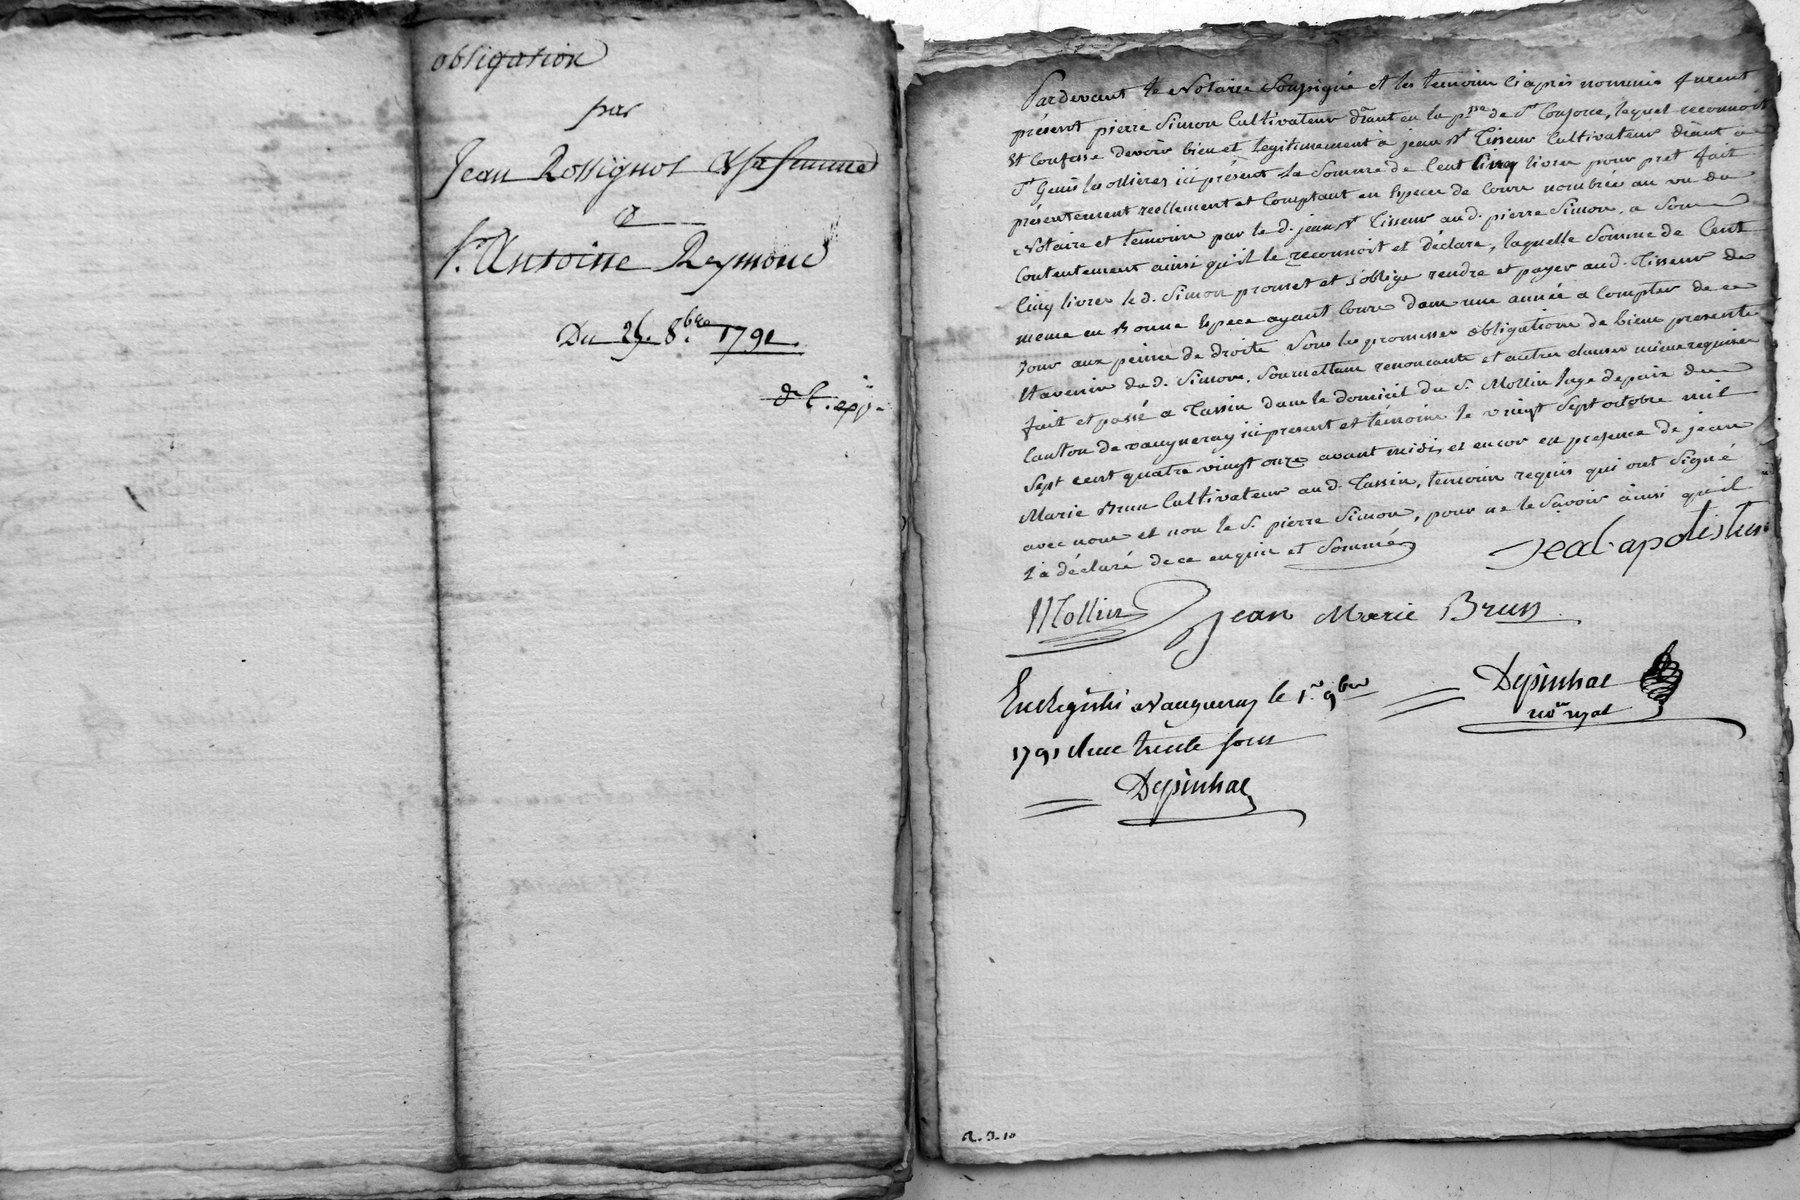 obligation
par
Jean Rossignol & sa femme
a
Sr. Antoine Reymond
Du 8.bre 1791.
Pardevant le Notaire soussigné et les temoins ci après nommés furent
présent pierre Simon Cultivateur dt en la psse de St Consorce, lequel reconnoit
et Confesse devoir bien et legitimement à jean Bt Tisseur Cultivateur dt à
St Genis les ollieres ici présent la Somme de Cent Cinq livres pour pret fait
présentement reellement et Comptant en Especes de Cours nombrées au vu du
Notaire et temoins par le d. jean Bt Tisseur aud. pierre Simon, a Son
Contentement ainsi qu'il le reconnoit et déclare, laquelle Somme de Cent
Cinq livres le d. Simon promet et s'oblige rendre et payer aud. Tisseur de
meme en Bonne Espece ayant Cours dans une année a Compter de ce
jour aux peines de droits Sous les promesses obligations de biens presents
et avenir dud. Simon, Soumettant renoncants et autres clauses même requises
fait et passé a Tassin dans le domicil du Sr. Mollin Juge de paix du
Canton de vaugneray ici present et témoin le vingt Sept octobre mil
Sept cent quatre vingt onze avant midi, et encor en presence de jean
Marie Brun Cultivateur aud. Tassin, temoins requis qui ont Signé
avec nous et non le d. pierre Simon, pour ne le Savoir ainsi qu'il
l'a déclaré de ce enquis et Sommé
Mollin Jean Marie Brun
Depinhac
nore royal
Enregistré a Vaugneray le 1er 9bre
1791 Reçu trente Sous
Depinhac
2.9.10